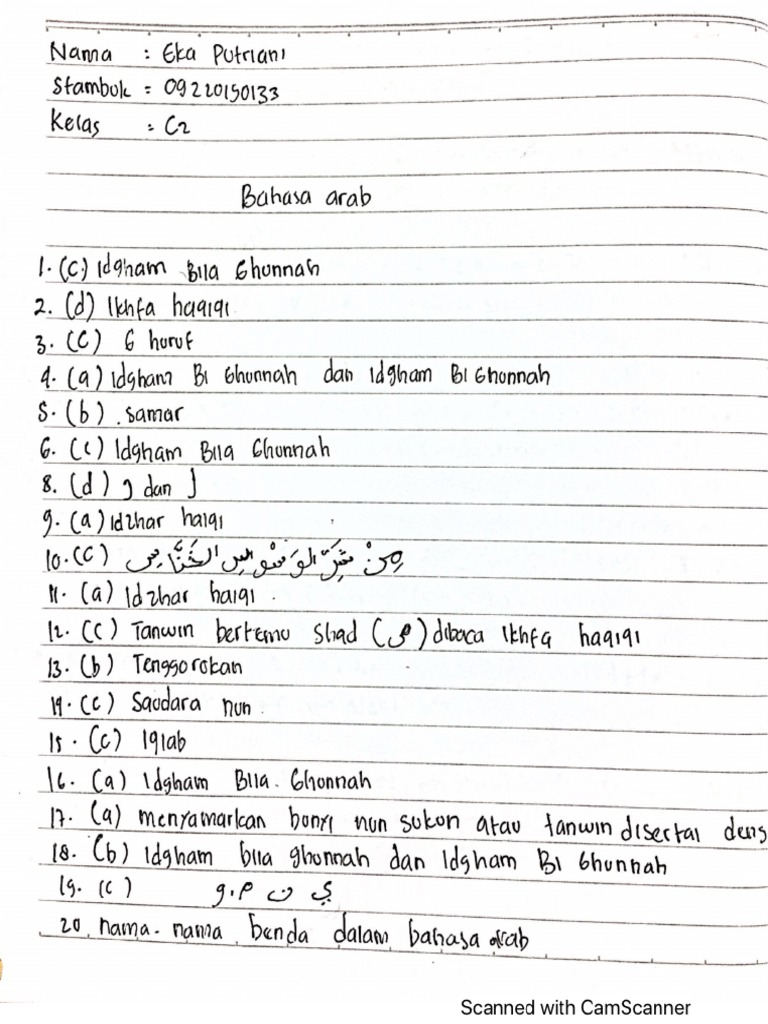 Nama : Eka Putriani
Stambuk : 09220150133
Kelas : C2
Bahasa arab
1. (c) Idgham Bila Ghunnah
2. (d) Ikhfa haqiqi
3. (c) 6 huruf
4. (a) Idgham Bi Ghunnah dan Idgham Bi Ghunnah
5. (b) . samar
6. (c) Idgham Bila Ghunnah
8. (d) و dan ل
9. (a) Idzhar halqi
10. (c) مِنْ شَرِّ الوَسْوَاسِ الخَنَّاسِ
11. (a) Idzhar halqi .
12. (c) Tanwin bertemu Shad (ص) dibaca Ikhfa haqiqi
13. (b) Tenggorokan
14. (c) Saudara nun .
15. (c) Iqlab
16. (a) Idgham Bila . Ghunnah
17. (a) menyamarkan bunyi nun sukun atau tanwin disertai deng
18. (b) Idgham bila ghunnah dan Idgham Bi Ghunnah
19. (c) و . م ن ي
20. nama-nama benda dalam bahasa arab
Scanned with CamScanner